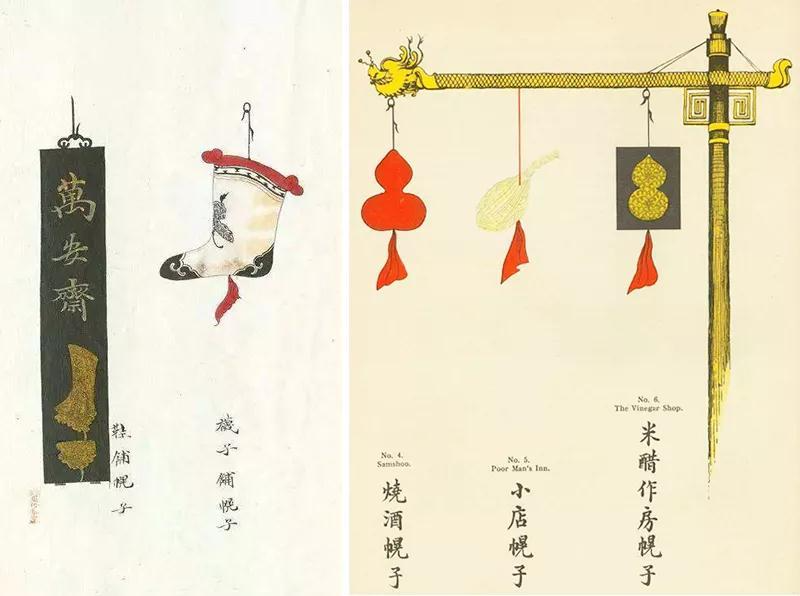 萬安齋
鞋鋪幌子
襪子鋪幌子
No. 4.
Samshoo.
燒酒幌子
No. 5.
Poor Man's Inn.
小店幌子
No. 6.
The Vinegar Shop.
米醋作房幌子